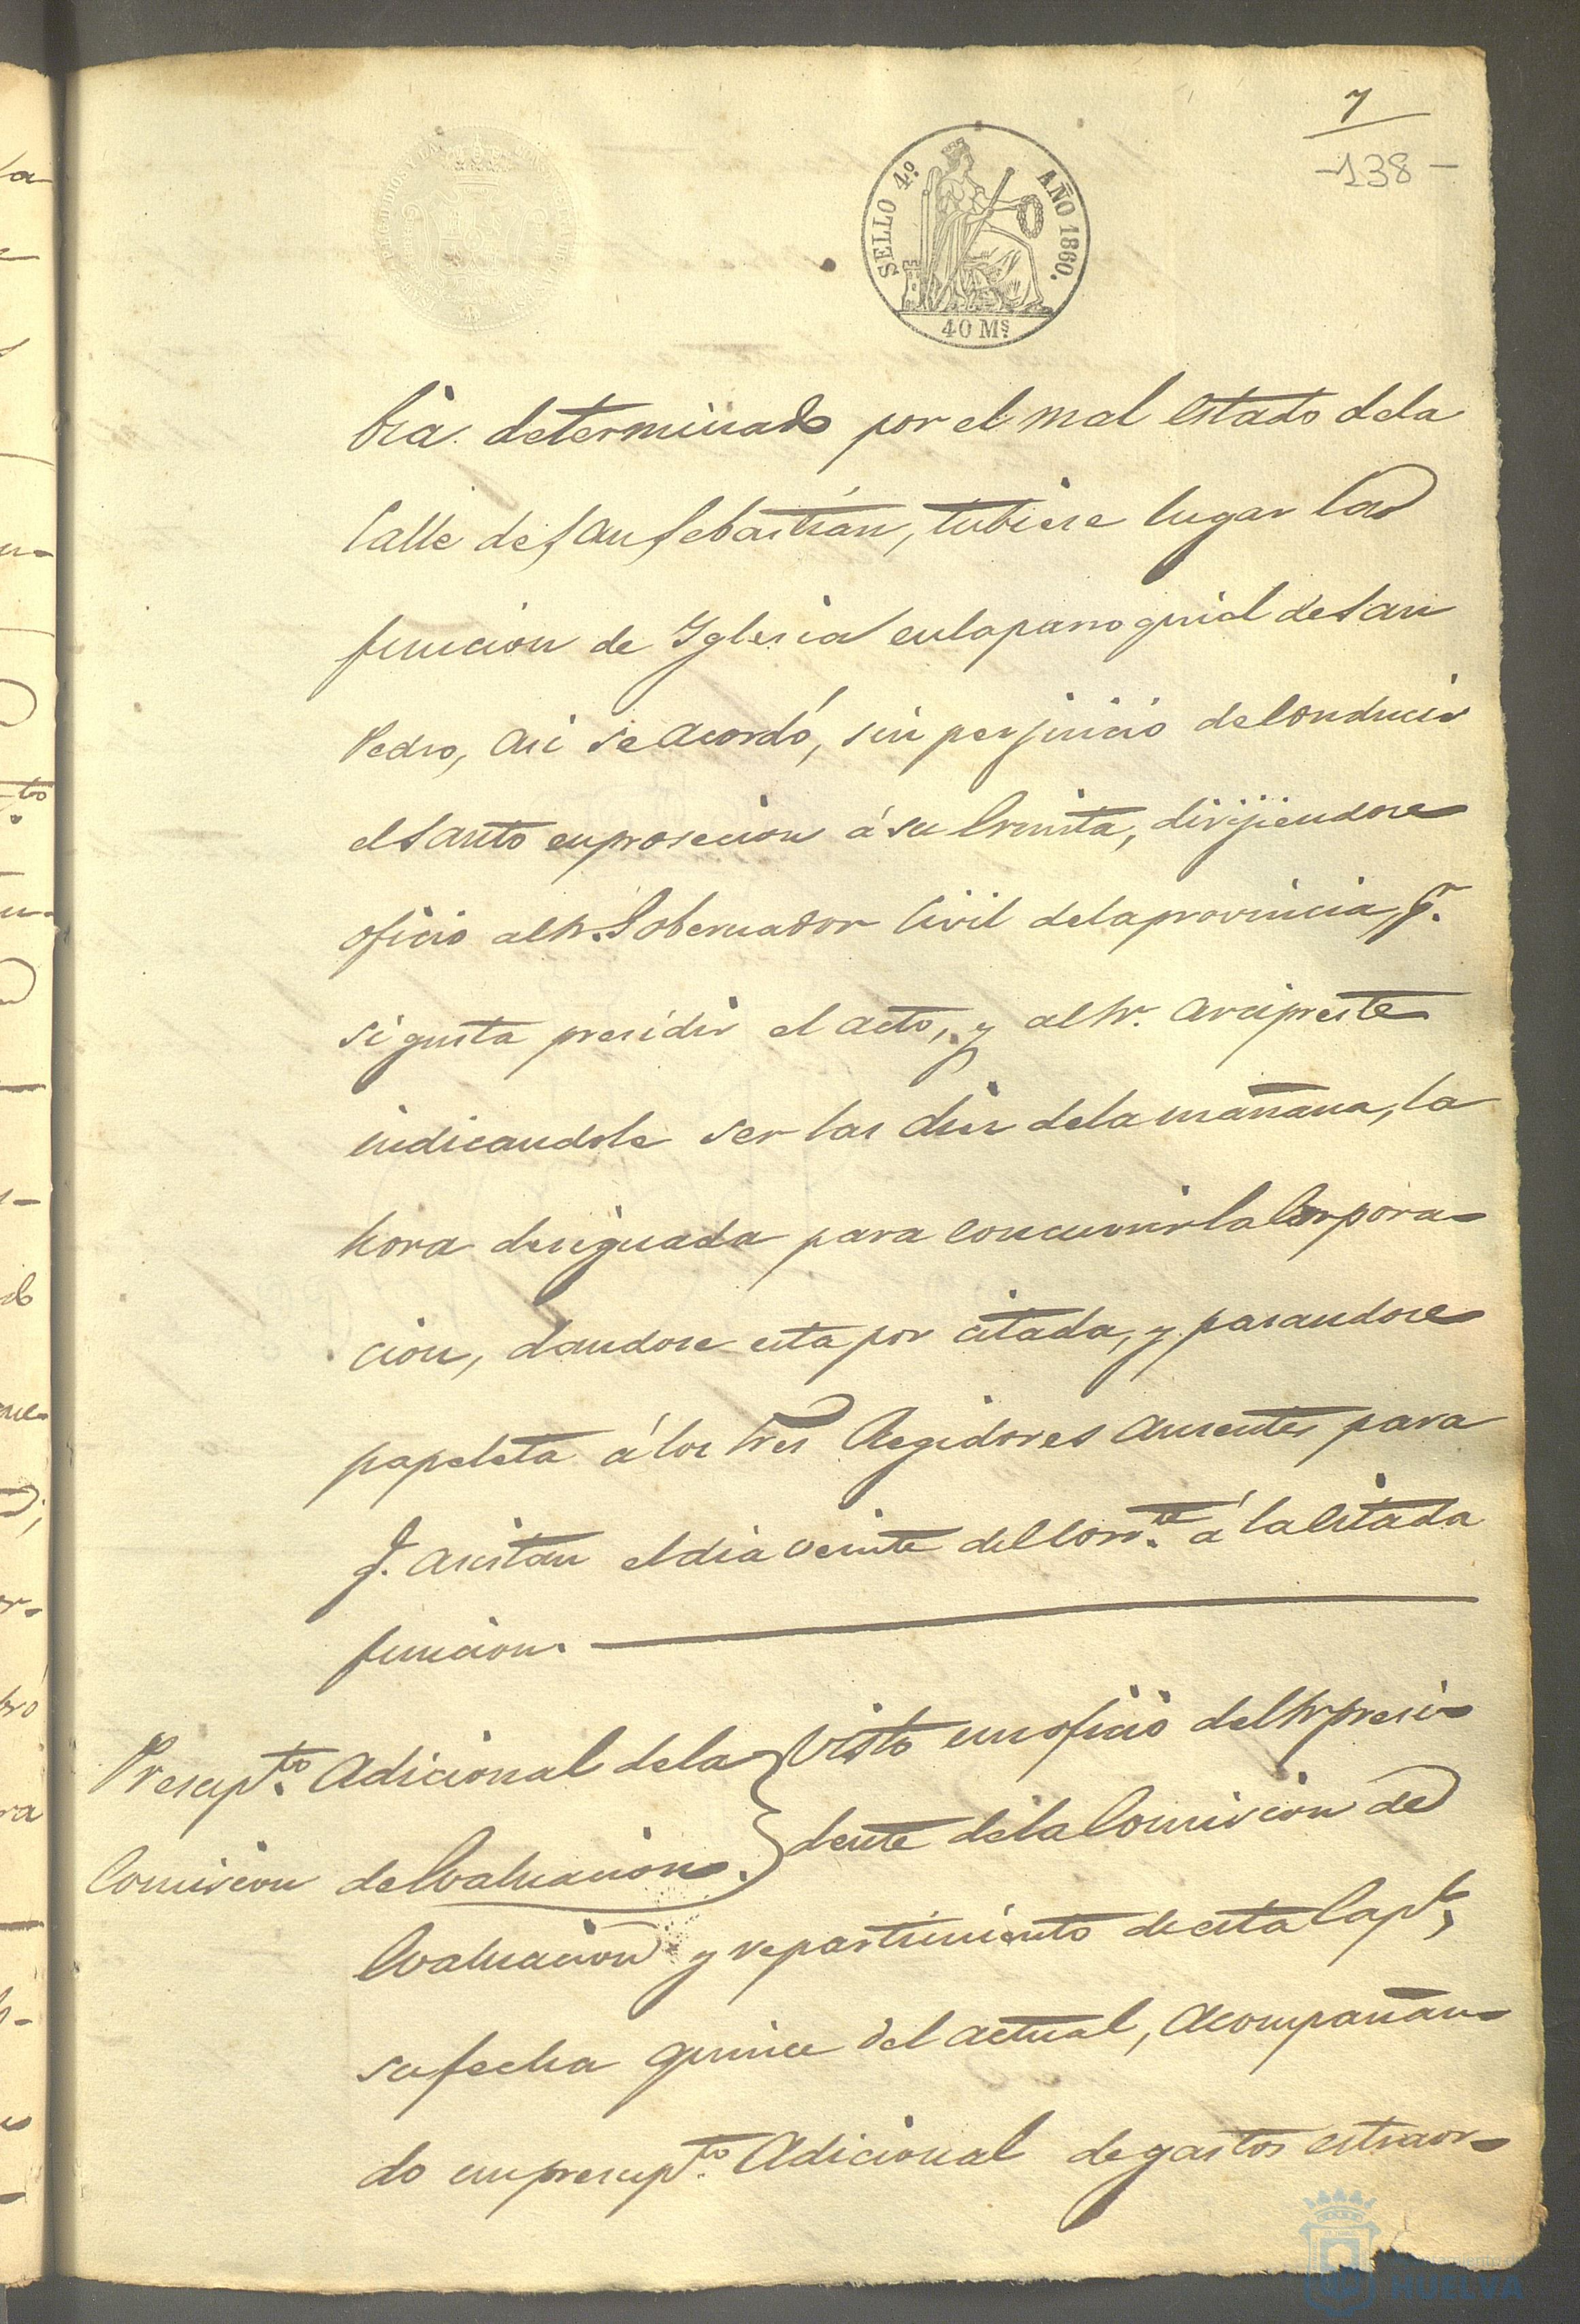 7
-138-
SELLO 4º AÑO 1860.
40 Ms
bia determinado por el mal estado dela
Calle de San Sebastián, tubiese lugar la
funcion de Yglesia en la parroquial de San
Pedro, asi se acordó, sin perjuicio de conducir
el Santo en prosecion á su Ermita, dirijiendose
oficio al Sr. Gobernador Civil dela provincia, pr.
si gusta presidir el acto, y al Sr. Arcipreste
indicandole ser las diez dela mañana, la
hora designada para concurrir la Corpora-
cion, dandose esta por citada, y pasandose
papeleta á los Sres Regidores ausentes para
q. asistan el dia veinte del corrte. á la citada
funcion.
Presupto. Adicional dela
Comision de Evaluacion.
Visto un oficio del Sr presi-
dente dela Comision de
Evaluacion y repartimiento de esta Capl,
su fecha quince del actual, acompañan-
do un presupto. Adicional de gastos estraor-
HUELVA